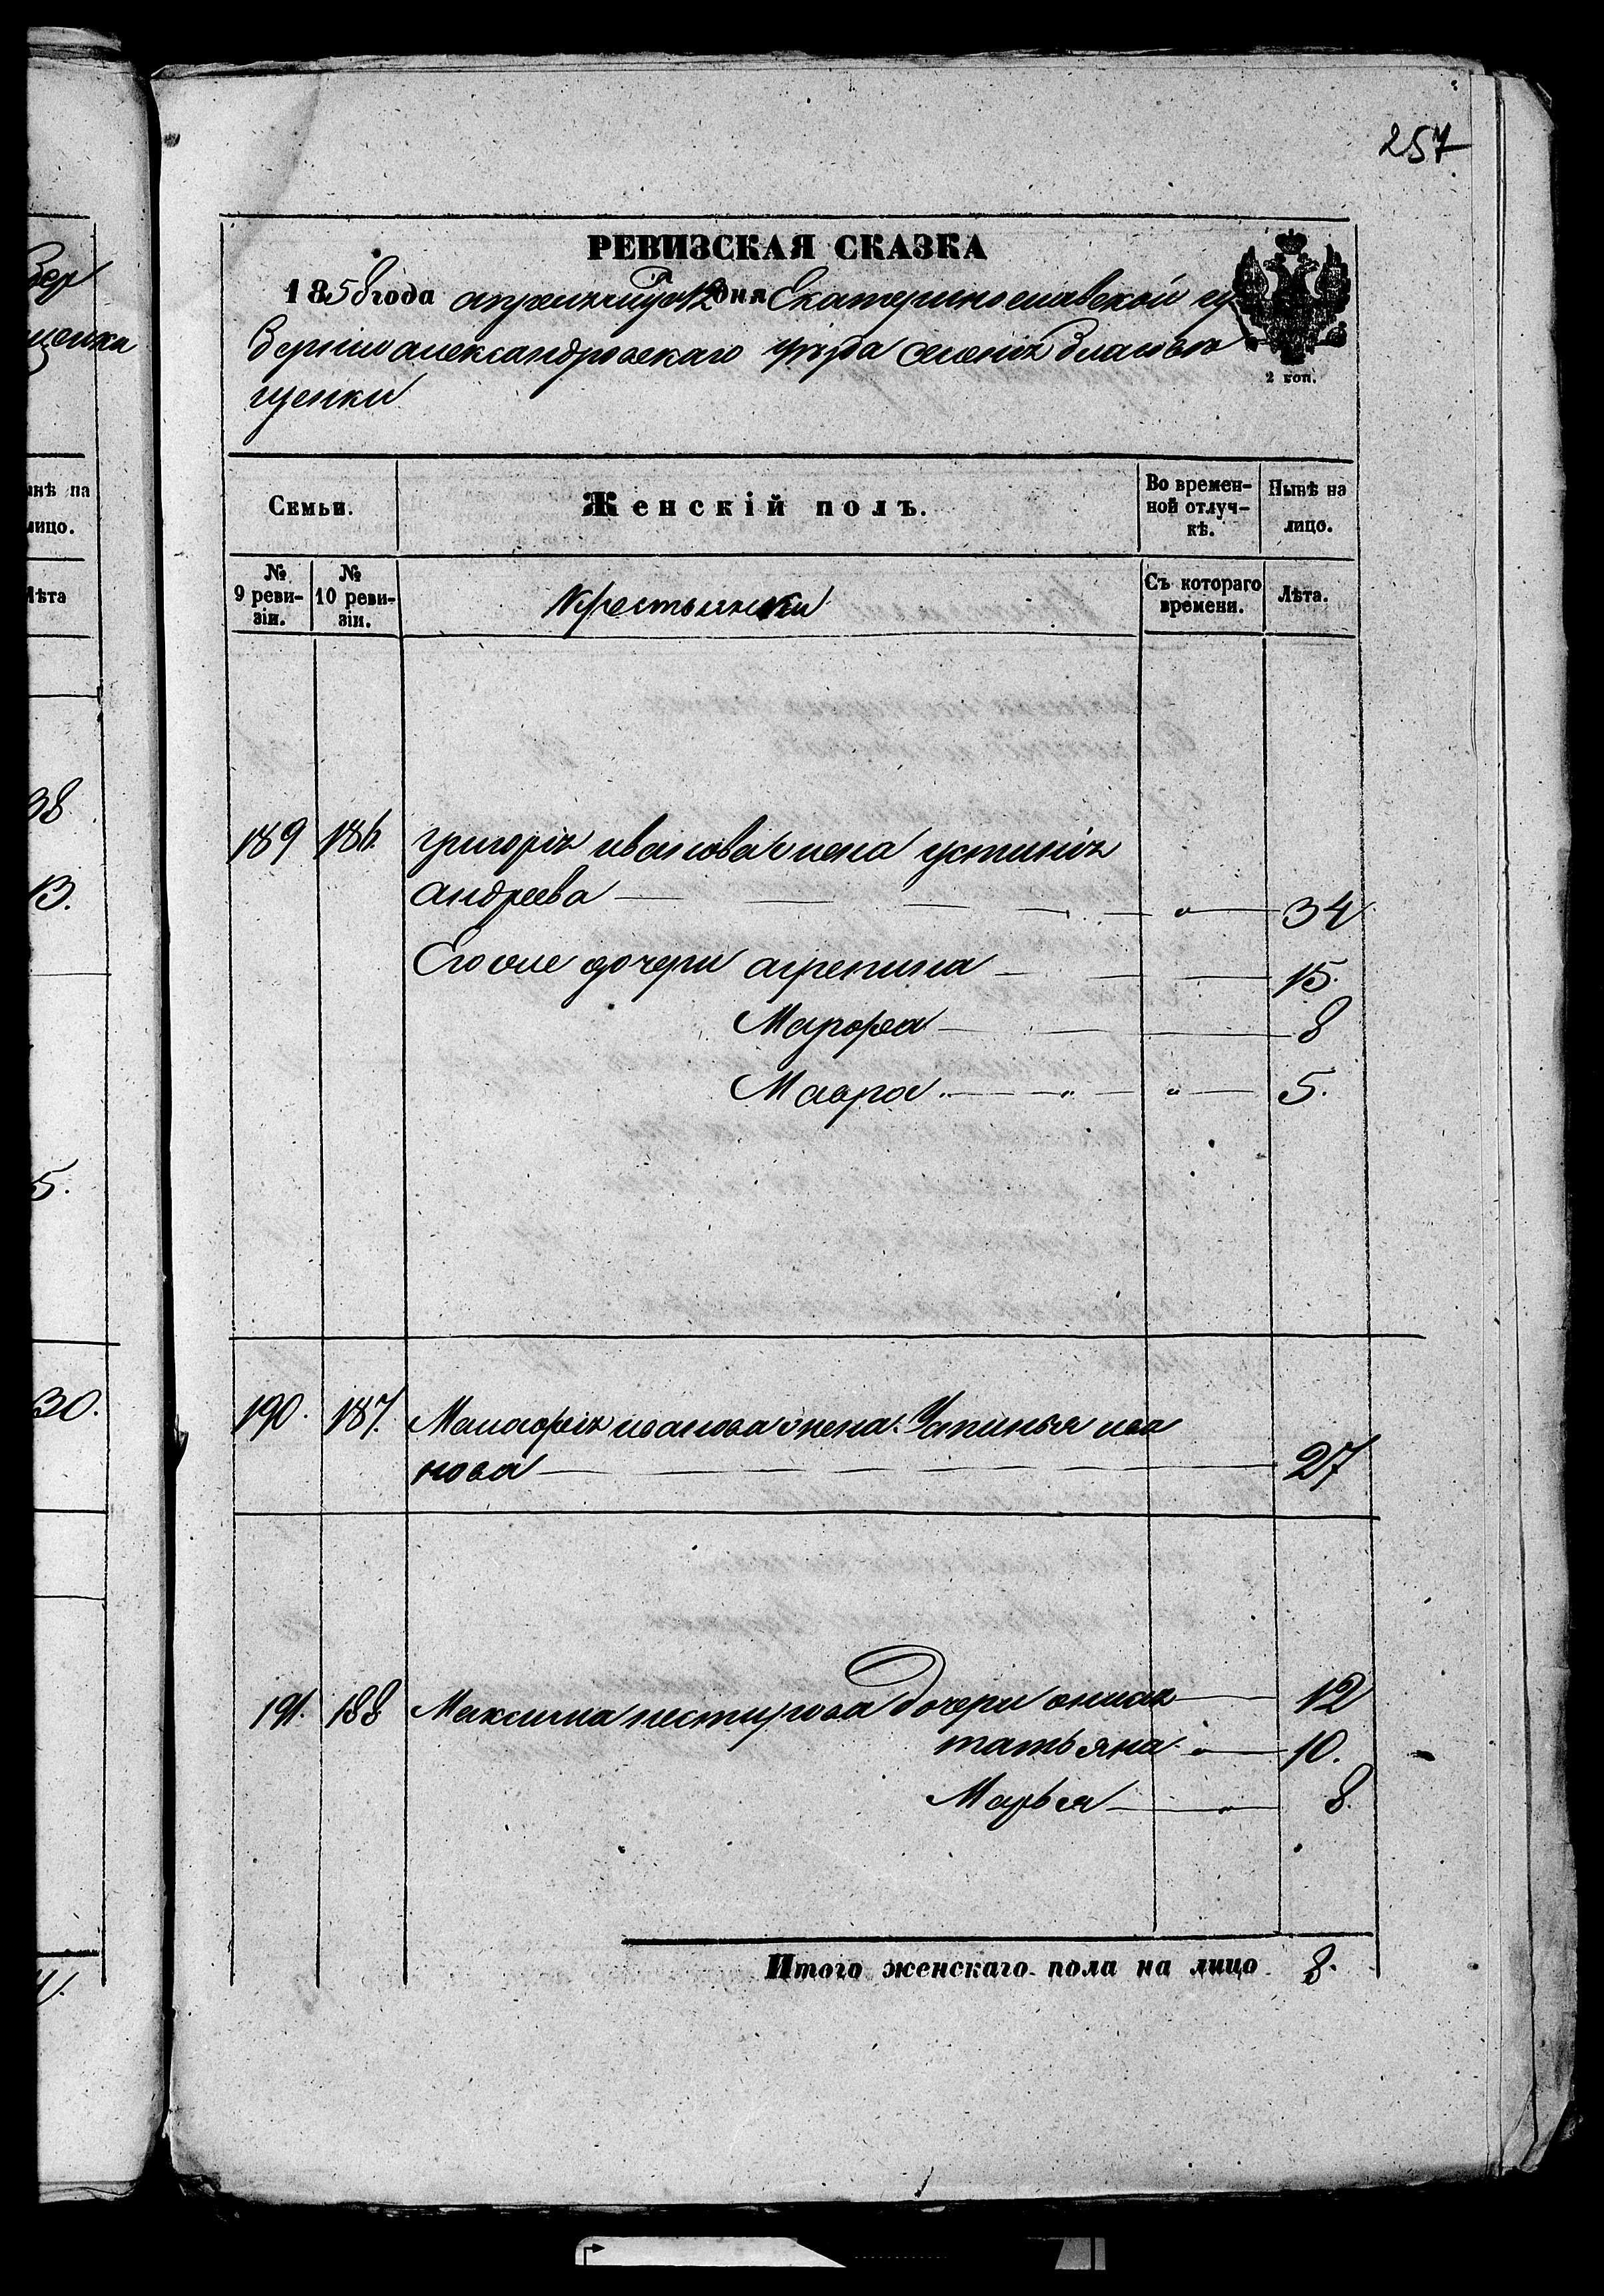 257
РЕВИЗСКАЯ СКАЗКА
1858 года апреля 12 дня Екатеринославской гу
берніи александровскаго уезда селенія благове
щенки
2 коп.
Семьи.
Женскій полъ.
Во времен-
ной отлуч-
кѣ.
Нынѣ на
лицо.
№
9 реви-
зіи.
№
10 реви-
зіи.
Крестьянки
Съ котораго
времени.
Лѣта.
189 186. григорія иванова жена устинія
андреева — 34
Его же дочери агрепина — 15.
Марфа — 8
Мавра — 5.
190. 187. иванова жена Устинья ива
нова — 27
191. 188 Максима нестирова дочери анисия — 12
татьяна — 10.
Марья — 8.
Итого женскаго пола на лицо 8.
ынѣ на
лицо.
Лѣта
38
13.
5.
30.